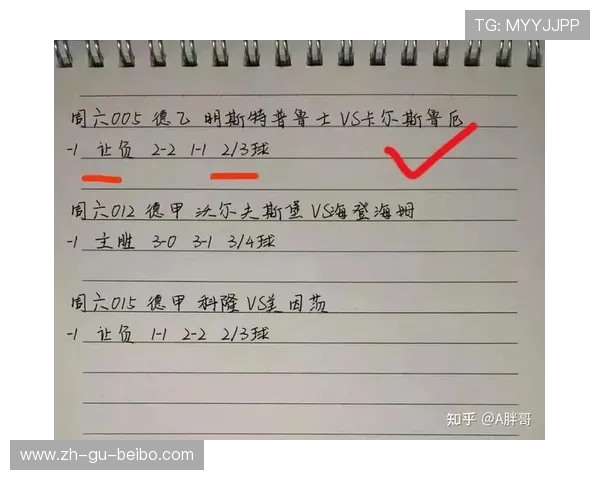 TG: MYYJJPP
周六005 德乙 明斯特普鲁士 VS卡尔斯鲁厄
-1 让负 2-2 1-1 2/3球
周六012 德甲 沃尔夫斯堡 VS海登海姆
-1 主胜 3-0 3-1 3/4球
周六015 德甲 科隆VS美因茨
-1 让负 1-1 2-2 2/3球
知乎 @A胖哥
www.zh-gu-beibo.com